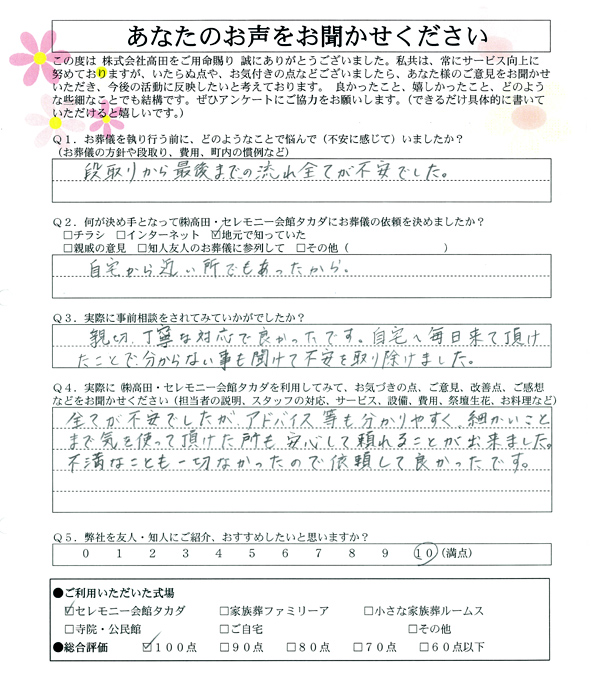 あなたのお声をお聞かせください
この度は 株式会社高田をご用命賜り 誠にありがとうございました。私共は、常にサービス向上に
努めておりますが、いたらぬ点や、お気付きの点などございましたら、あなた様のご意見をお聞かせ
いただき、今後の活動に反映したいと考えております。 良かったこと、嬉しかったこと、どのよう
な些細なことでも結構です。ぜひアンケートにご協力をお願いします。（できるだけ具体的に書いて
いただけると嬉しいです。）
Q１．お葬儀を執り行う前に、どのようなことで悩んで（不安に感じて）いましたか？
（お葬儀の方針や段取り、費用、町内の慣例など）
段取りから最後までの流れ全てが不安でした。
Q２．何が決め手となって㈱高田・セレモニー会館タカダにお葬儀の依頼を決めましたか？
□チラシ □インターネット ☑地元で知っていた
□親戚の意見 □知人友人のお葬儀に参列して □その他（ ）
自宅から近い所でもあったから。
Q３．実際に事前相談をされてみていかがでしたか？
親切、丁寧な対応で良かったです。自宅へ毎日来て頂け
たことで分からない事も聞けて不安を取り除けました。
Q４．実際に ㈱高田・セレモニー会館タカダを利用してみて、お気づきの点、ご意見、改善点、ご感想
などをお聞かせください（担当者の説明、スタッフの対応、サービス、設備、費用、祭壇生花、お料理など）
全てが不安でしたが、アドバイス等も分かりやすく、細かいこと
まで気を使って頂けた所も安心して頼れることが出来ました。
不満なことも一切なかったので依頼して良かったです。
Q５．弊社を友人・知人にご紹介、おすすめしたいと思いますか？
０ １ ２ ３ ４ ５ ６ ７ ８ ９ １０（満点）
●ご利用いただいた式場
☑セレモニー会館タカダ □家族葬ファミリーア □小さな家族葬ルームス
□寺院・公民館 □ご自宅 □その他
●総合評価 ☑１００点 □９０点 □８０点 □７０点 □６０点以下